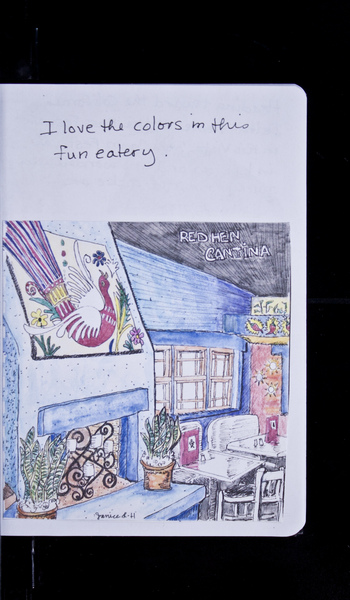 I love the colors in this
fun eatery.
RED HEN
CANTINA
Janice R-H